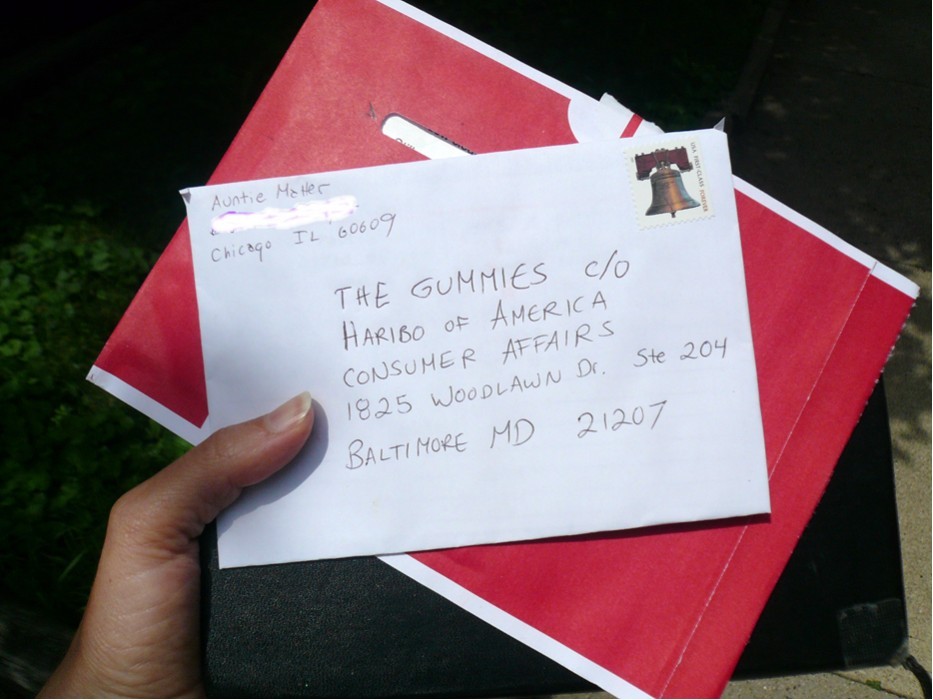 Auntie Matter
Chicago IL 60609
USA FIRST-CLASS FOREVER
THE GUMMIES c/o
HARIBO OF AMERICA
CONSUMER AFFAIRS
1825 WOODLAWN Dr. Ste 204
BALTIMORE MD 21207